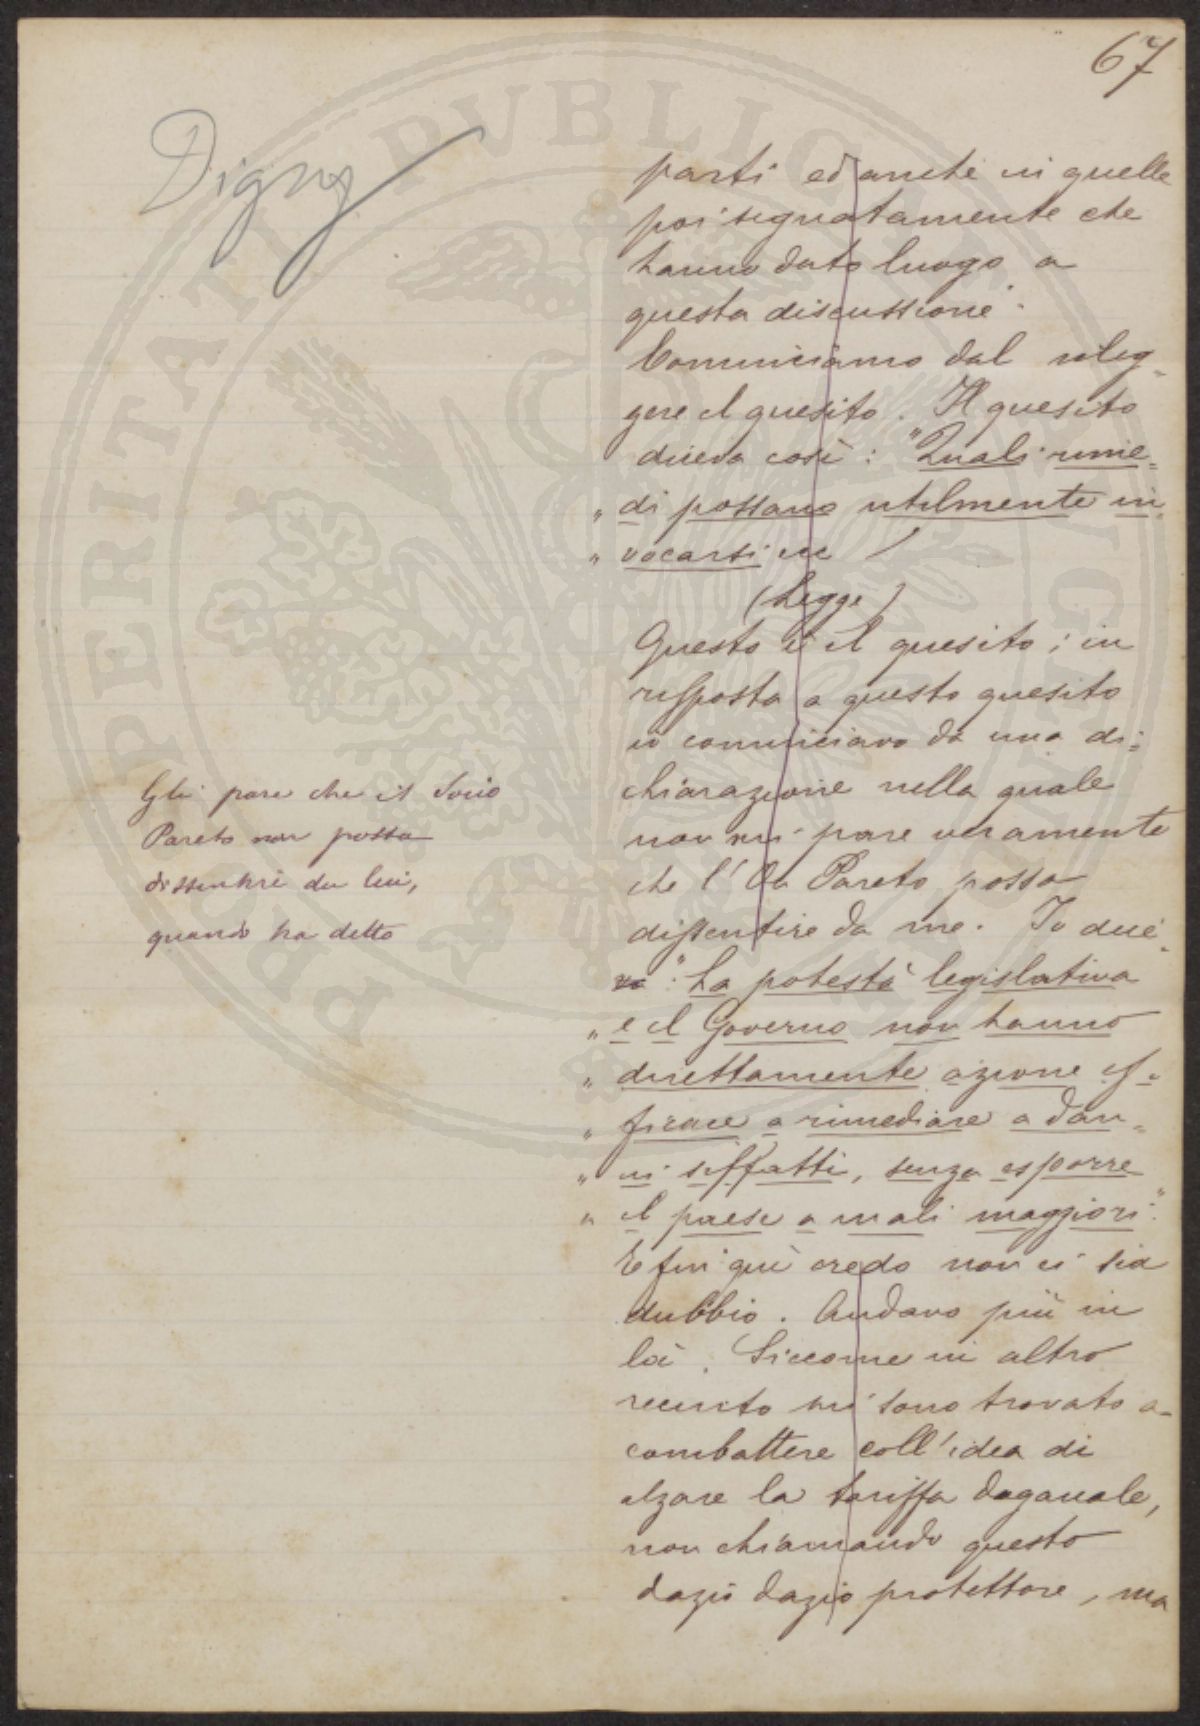 67
Digny
parti ed anche in quelle
poi segnatamente che
hanno dato luogo a
questa discussione.
Cominciamo dal rileg-
gere il quesito. Il quesito
diceva così: "Quali rime-
" di possano utilmente in-
" vocarsi ec
(Legge)
Questo è il quesito; in
risposta a questo quesito
io cominciavo da una di-
chiarazione nella quale
non mi pare veramente
che l'On Pareto possa
dissentire da me. Io dice-
vo: "La potestà legislativa
" e il Governo non hanno
" direttamente azione ef-
" ficace a rimediare a dan-
" ni siffatti, senza esporre
" il paese a mali maggiori."
E fin qui credo non ci sia
dubbio. Andavo più in
là. Siccome in altro
recinto mi sono trovato a
combattere coll'idea di
alzare la tariffa doganale,
non chiamando questo
dazio dazio protettore, ma
Gli pare che il Socio
Pareto non possa
dissentire da lui,
quando ha detto
PRO PERITATE PUBLICA